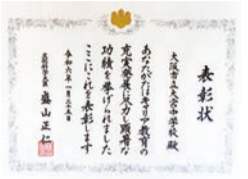 表彰状
大阪市立大宮中学校 殿
あなたがたはキャリア教育の
充実発展に尽力し顕著な
功績を挙げられました
ここにこれを表彰します
令和六年一月三十一日
文部科学大臣
盛山正仁